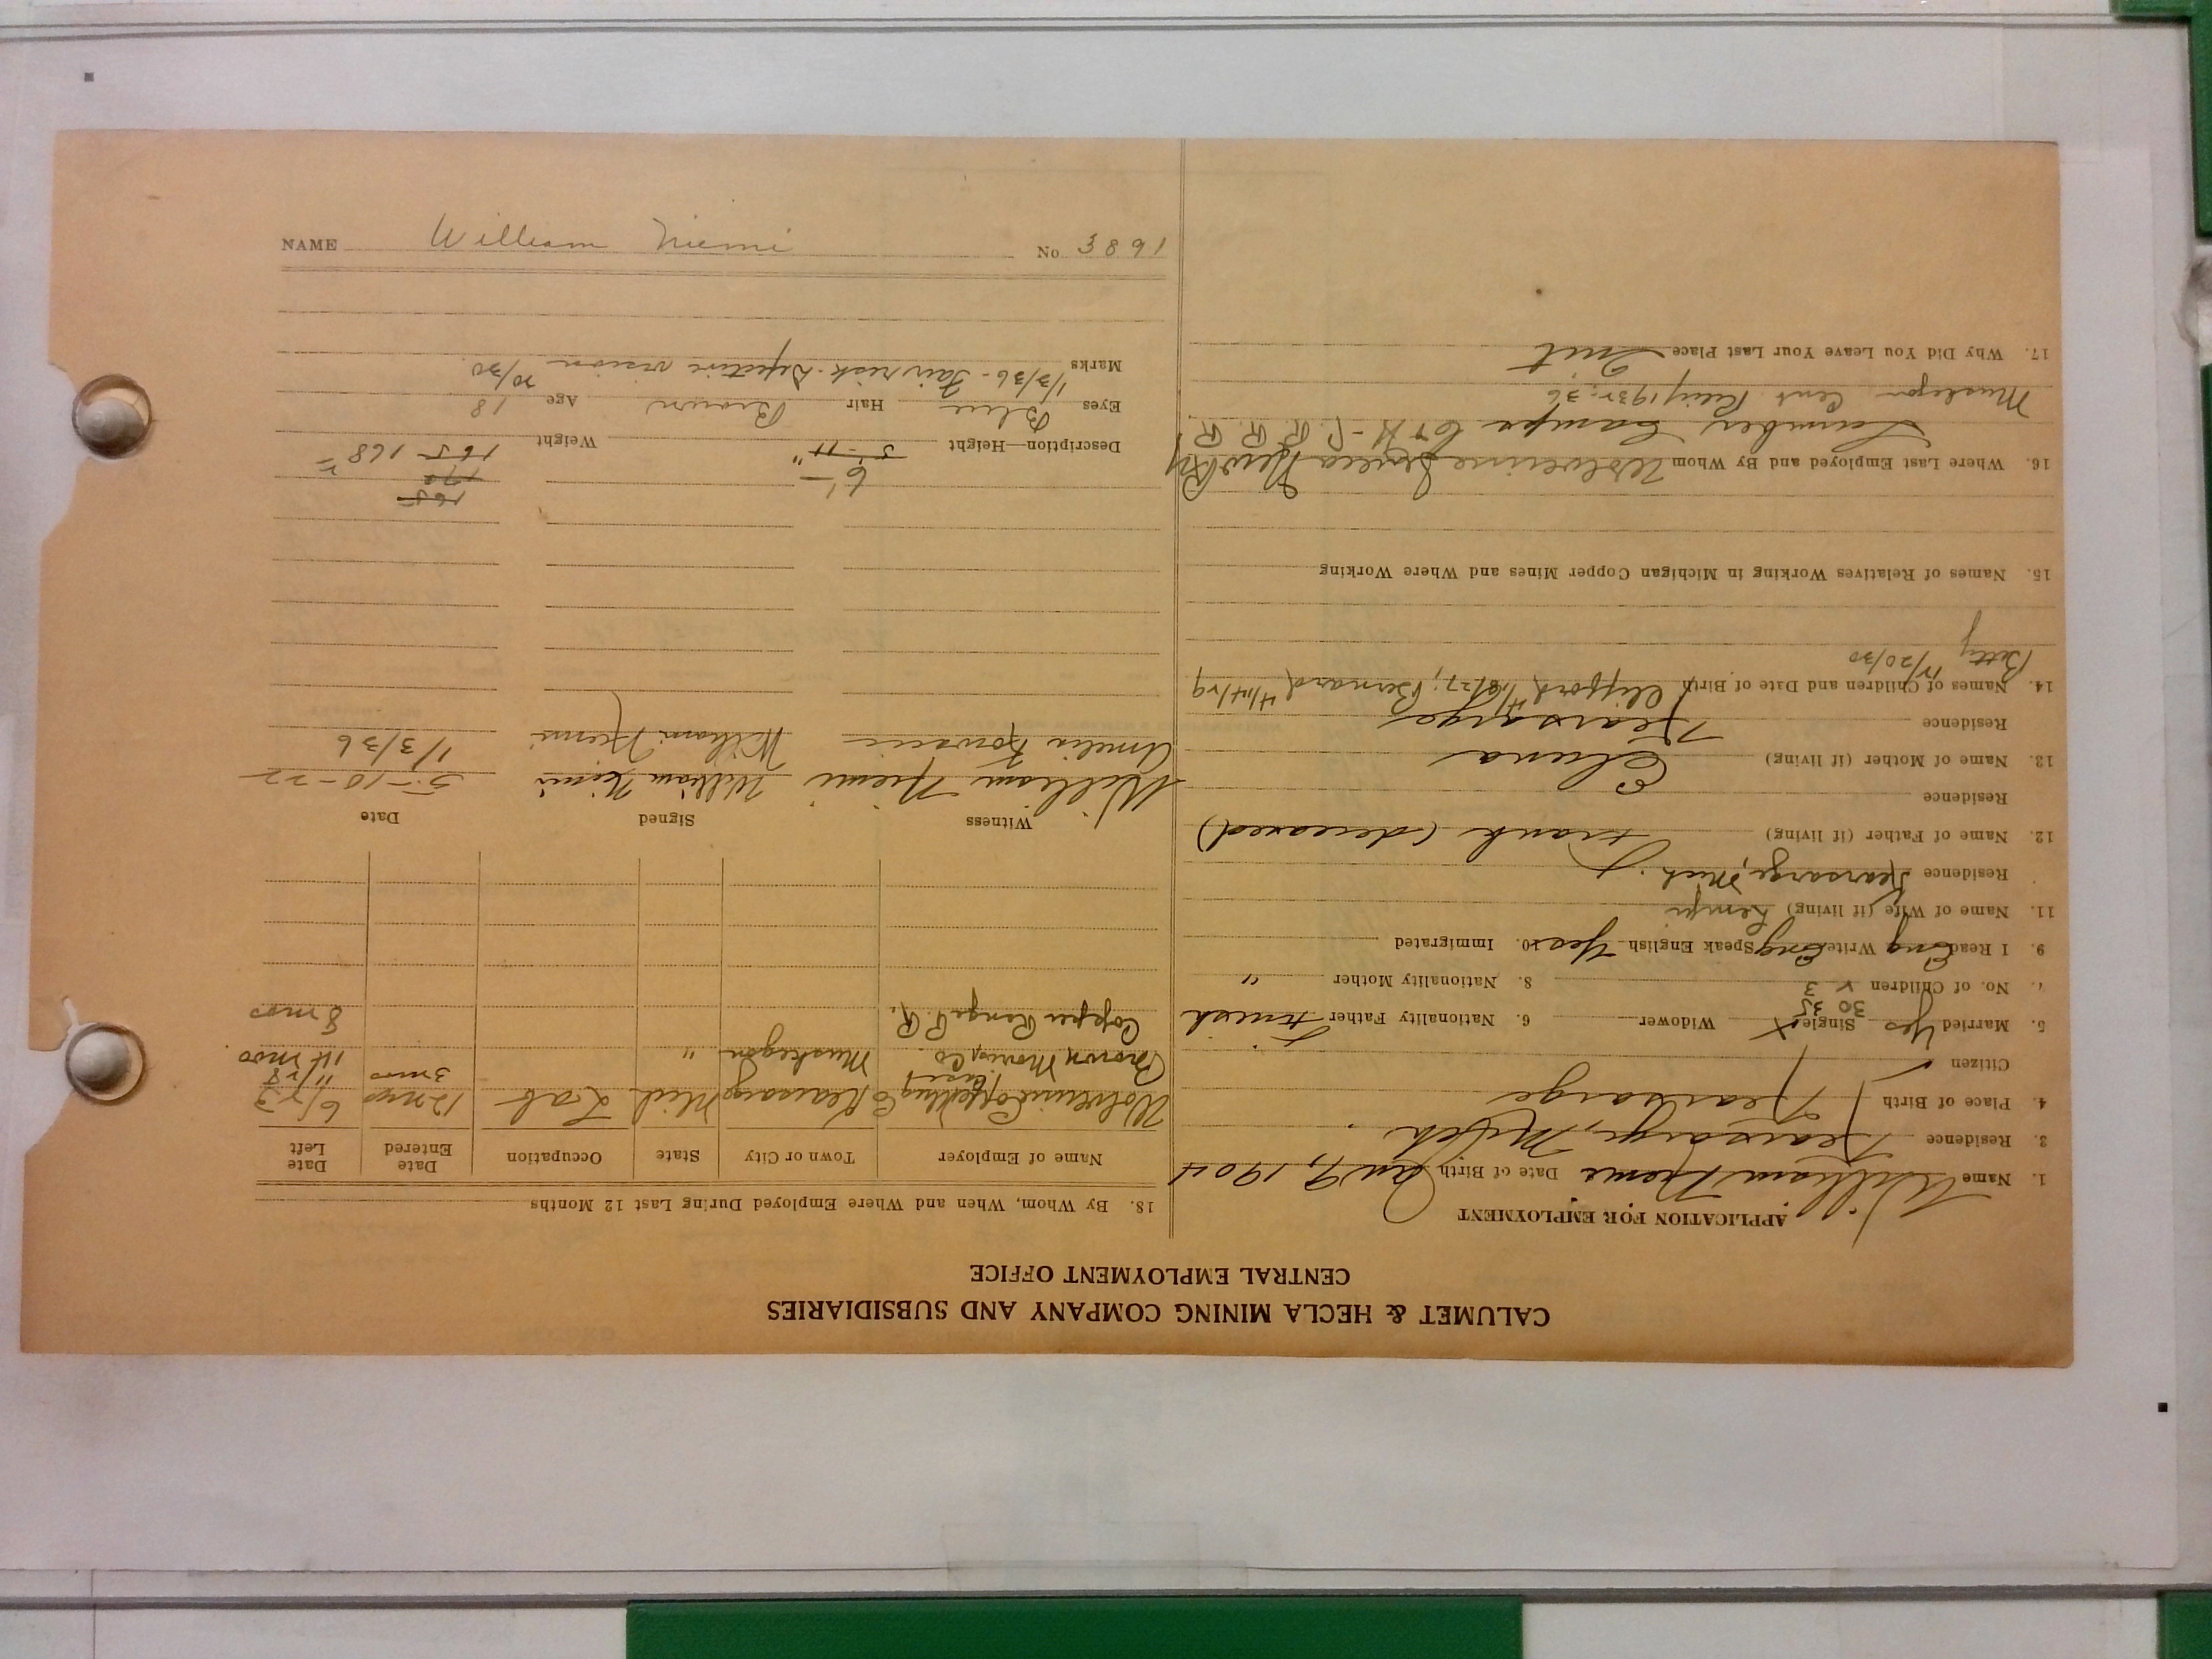 CALUMET & HECLA MINING COMPANY AND SUBSIDIARIES
CENTRAL EMPLOYMENT OFFICE
APPLICATION FOR EMPLOYMENT
1. Name William Niemi Date of Birth Jan 9, 1904
3. Residence Kearsarge, Mich
4. Place of Birth Kearsarge
Citizen
5. Married Yes Single X Widower 6. Nationality Father Finish
30 35
7. No. of Children 3 8. Nationality Mother "
9. I Read Eng Write Eng Speak English Yes 10. Immigrated
11. Name of Wife (if living) Lempi
Residence Kearsarge, Mich.
12. Name of Father (if living) Frank (deceased)
Residence
13. Name of Mother (if living)
Residence Kearsarge
14. Names of Children and Date of Birth Clifford 27; Bernard
Betty 20/30
15. Names of Relatives Working in Michigan Copper Mines and Where Working
16. Where Last Employed and By Whom Wolverine
Lumber Camps
Muskegon
17. Why Did You Leave Your Last Place Quit
18. By Whom, When and Where Employed During Last 12 Months
Name of Employer Town or City State Occupation Date Entered Date Left
Wolverine Kearsarge Mich Lab 12 mos 6/23
3 mos 11/28
Muskegon " 14 mos
Copper Range R.R. 8 mos
Witness Signed Date
William Niemi William Niemi 5-10-22
Amelia William Niemi 1/3/36
165
170
6'
Description—Height 5-11" Weight 165 168
Eyes Blue Hair Brown Age 18
1/3/36 - Fair risk - Defective vision 20/30
Marks
NAME William Niemi No. 3891